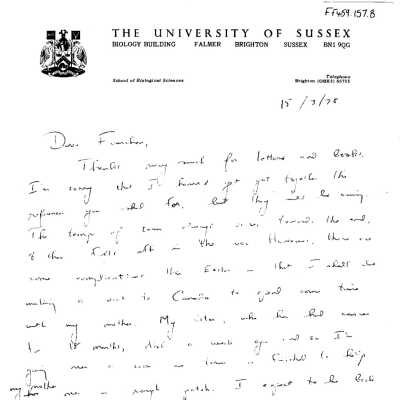 FF459.157.8
THE UNIVERSITY OF SUSSEX
BIOLOGY BUILDING FALMER BRIGHTON SUSSEX BN1 9QG
School of Biological Sciences
Telephone
Brighton (0273) 66755
15/3/75
Dear
Thanks very much for letters and books.
I'm sorry that I haven't yet got together the
references you asked for, but they will be coming.
The of term always is toward the end,
some complications this Easter in that I shall be
making a visit to Canada to spend some time
with my mother. My sister, who has had cancer
for 18 months, died a week ago and so I'm
going over as soon as term is finished to help
my mother over a rough patch. I expect to be back